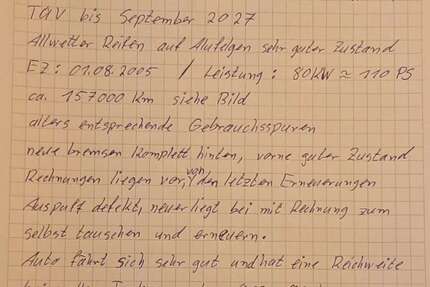 TÜV bis September 2027
Allwetter Reifen auf Alufelgen sehr guter Zustand
EZ: 01.08.2005 / Leistung: 80KW ≈ 110 PS
ca. 157000 Km siehe Bild
alters entsprechende Gebrauchsspuren
neue bremsen komplett hinten, vorne guter Zustand
Rechnungen liegen vor, von den letzten Erneuerungen
Auspuff defekt, neuer liegt bei mit Rechnung zum
selbst tauschen und erneuern.
Auto fährt sich sehr gut und hat eine Reichweite